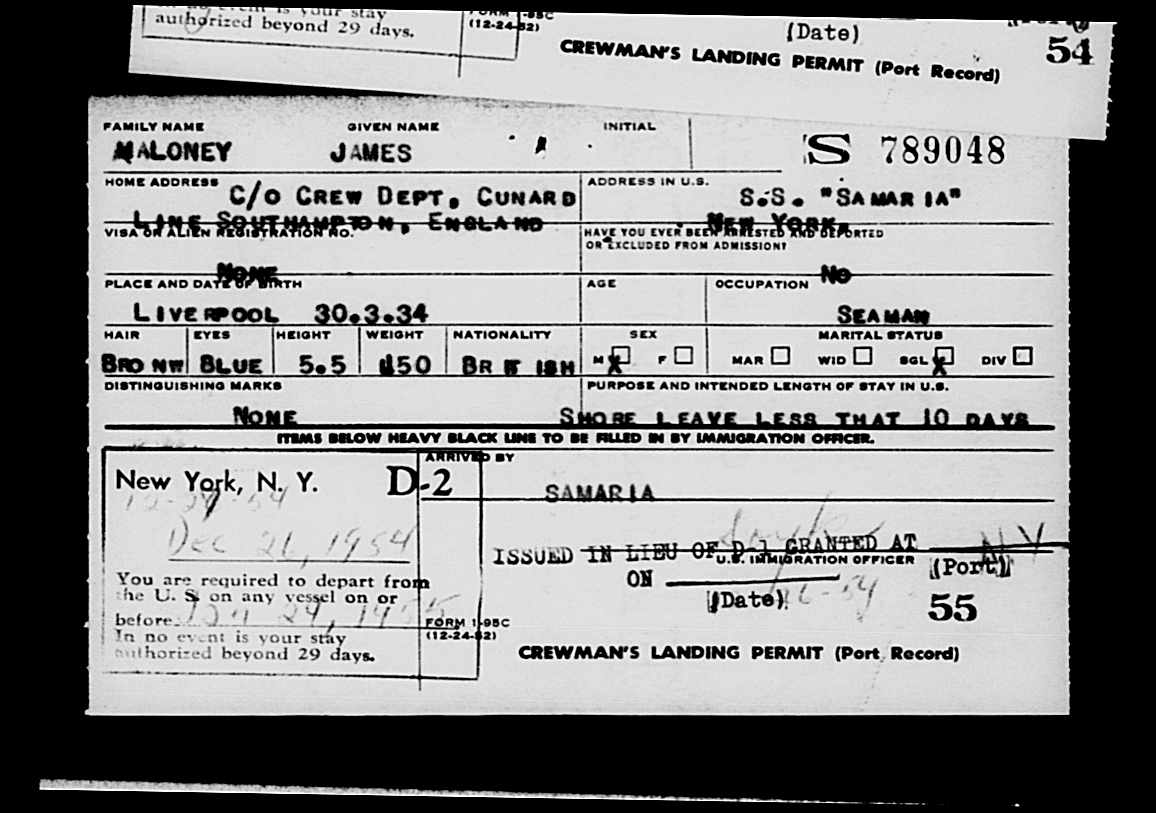 In no event is your stay
authorized beyond 29 days.
FORM I-95C
(12-24-52)
(Date)
54
CREWMAN'S LANDING PERMIT (Port Record)
FAMILY NAME GIVEN NAME INITIAL
MALONEY JAMES S 789048
HOME ADDRESS C/O CREW DEPT. CUNARD
LINE SOUTHAMPTON, ENGLAND
ADDRESS IN U.S. S.S. "SAMARIA"
NEW YORK.
VISA OR ALIEN REGISTRATION NO.
NONE
HAVE YOU EVER BEEN ARRESTED AND DEPORTED
OR EXCLUDED FROM ADMISSION?
NO
PLACE AND DATE OF BIRTH AGE OCCUPATION
LIVERPOOL 30.3.34 SEAMAN
HAIR EYES HEIGHT WEIGHT NATIONALITY SEX MARITAL STATUS
BROWN BLUE 5.5 150 BRITISH M X F MAR WID SGL X DIV
DISTINGUISHING MARKS PURPOSE AND INTENDED LENGTH OF STAY IN U.S.
NONE SHORE LEAVE LESS THAT 10 DAYS
ITEMS BELOW HEAVY BLACK LINE TO BE FILLED IN BY IMMIGRATION OFFICER.
ARRIVED BY
New York, N. Y. D-2 SAMARIA
Dec 26, 1954
ISSUED IN LIEU OF D-1 GRANTED AT NY
U.S. IMMIGRATION OFFICER (Port)
ON
(Date)
55
You are required to depart from
the U. S. on any vessel on or
before Jan 24, 1955
In no event is your stay
authorized beyond 29 days.
FORM I-95C
(12-24-52)
CREWMAN'S LANDING PERMIT (Port Record)